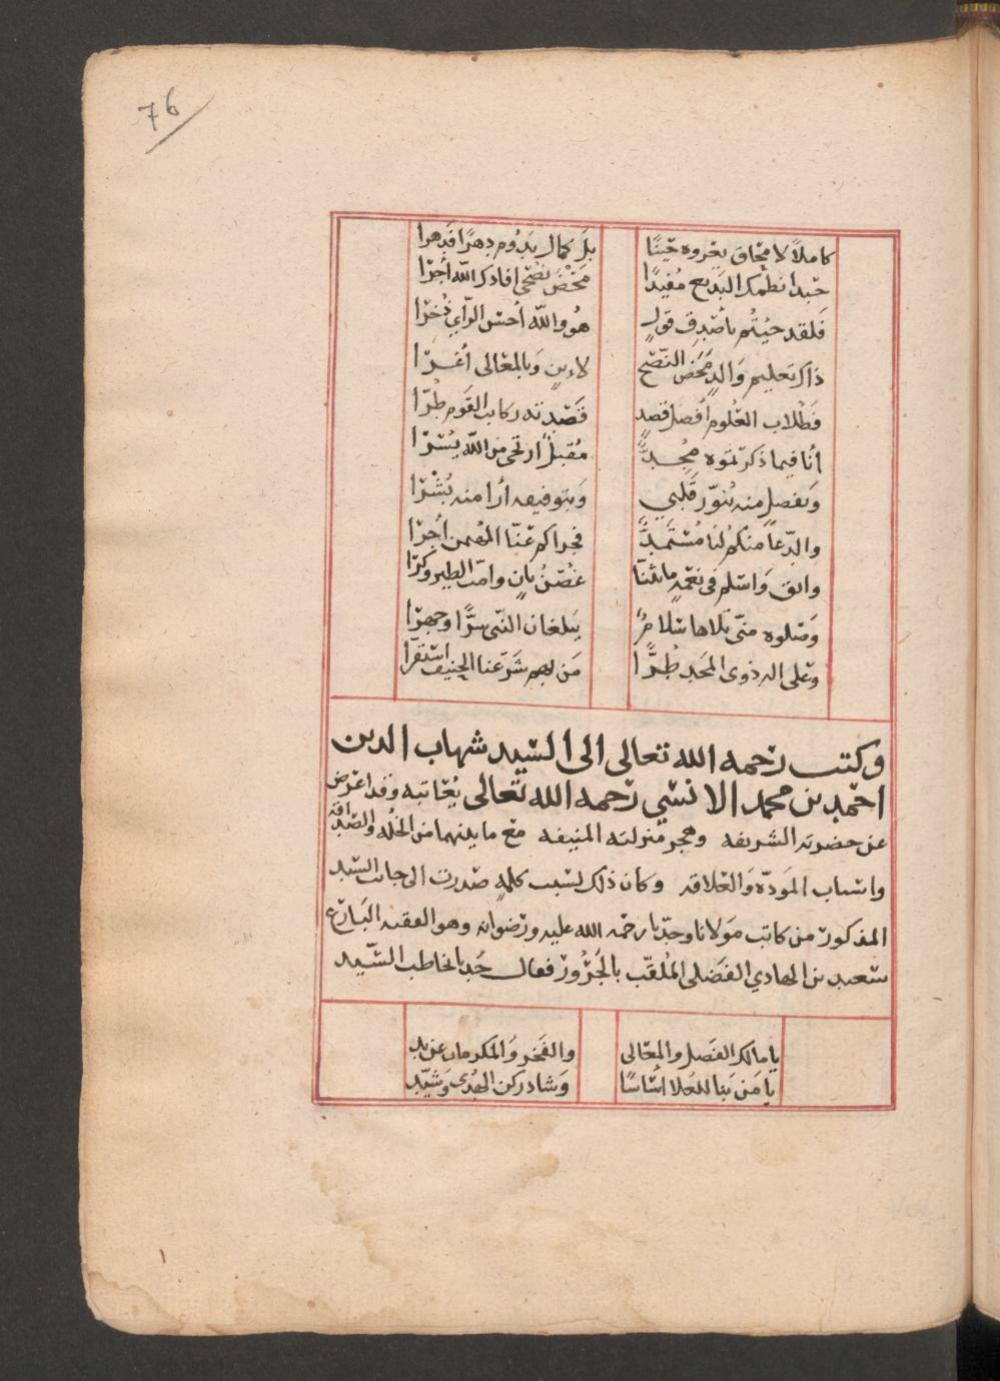 76
كاملاً لا محاق يعروه حينًا بل كمال يدوم دهرًا فدهرا
حبذا نظمك البديع مفيدًا محض نصحى افادك الله أجرًا
فلقد حيثتم بأصدق قول هو والله أحسن الرأي ذخرًا
ذاكر تعليم والدٍ محض النصح لاءبن وبالمعالى أغرا
فطلاب العلوم أفضل قصدٍ قصدته ركاب القوم طرّا
أنا فيما ذكرتموه مجدٌّ مقبلٌ ارتجى من الله يسرا
وبفضلٍ منه ينوّر قلبي وبتوفيقه أرا منه بشرا
والدعا منكم لنا مستمدٌّ فجزاكم عنّا المهيمن أجرا
وابق واسلم فى نعمةٍ ما تثنّا غصن بانٍ وامّت الطير وكرا
وصلوه منّى تلاها سلامٌ يبلغان النبى سرًّا وجهرا
وعلى اله ذوى المجد طرًّا من بهم شرعنا الحنيف استقرا
وكتب رحمه الله تعالى الى السيد شهاب الدين
احمد بن محمد الانسي رحمه الله تعالى يعاتبه وقد اعرض
عن حضرته الشريفه وهجر منزلته المنيفه مع ما بينهما من الخله والصداقه
واسباب المودّه والعلاقه وكان ذلك لسبب كلمةٍ صدرت الى جانب السيد
المذكور من كاتب مولانا وجدّنا رحمة الله عليه ورضوانه وهو الفقيه البارع
سعيد بن الهادي الفضلى الملقب بالجزور فقال جدنا يخاطب السّيد
يا مالك الفضل والمعالى والفخر والمكرمات عن يد
يا من بنا للعلا أساسًا وشاد ركن الهدى وشيّد